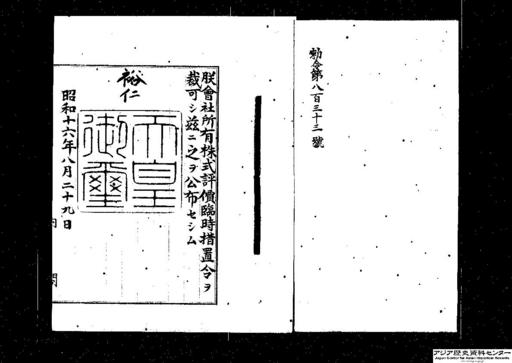 勅令第八百三十三號
朕會社所有株式評價臨時措置令ヲ
裁可シ茲ニ之ヲ公布セシム
裕仁
天皇
御璽
昭和十六年八月二十九日
内閣
アジア歴史資料センター
Japan Center for Asian Historical Records